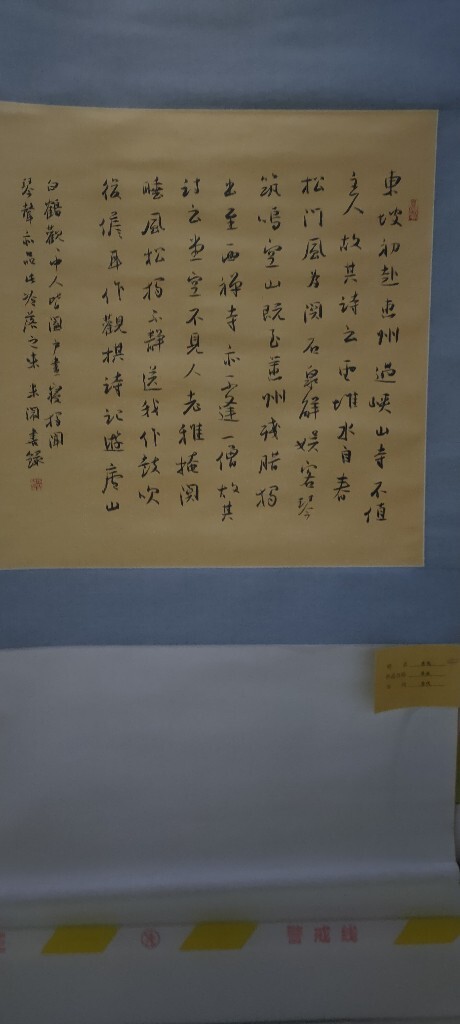 東坡初赴惠州過峽山寺不值
主人故其詩云雲碓水自舂
松門風為関石泉解娛客琴
筑鳴空山既至惠州殘腊獨
出至西禪寺亦不逢一僧故其
詩云堂空不見人老稚掩関
睡風松獨不静送我作鼓吹
後儋耳作觀棋詩記遊廬山
白鶴觀中人皆闔户晝寢獨聞
琴聲亦品此冷落之味 書錄
警戒线